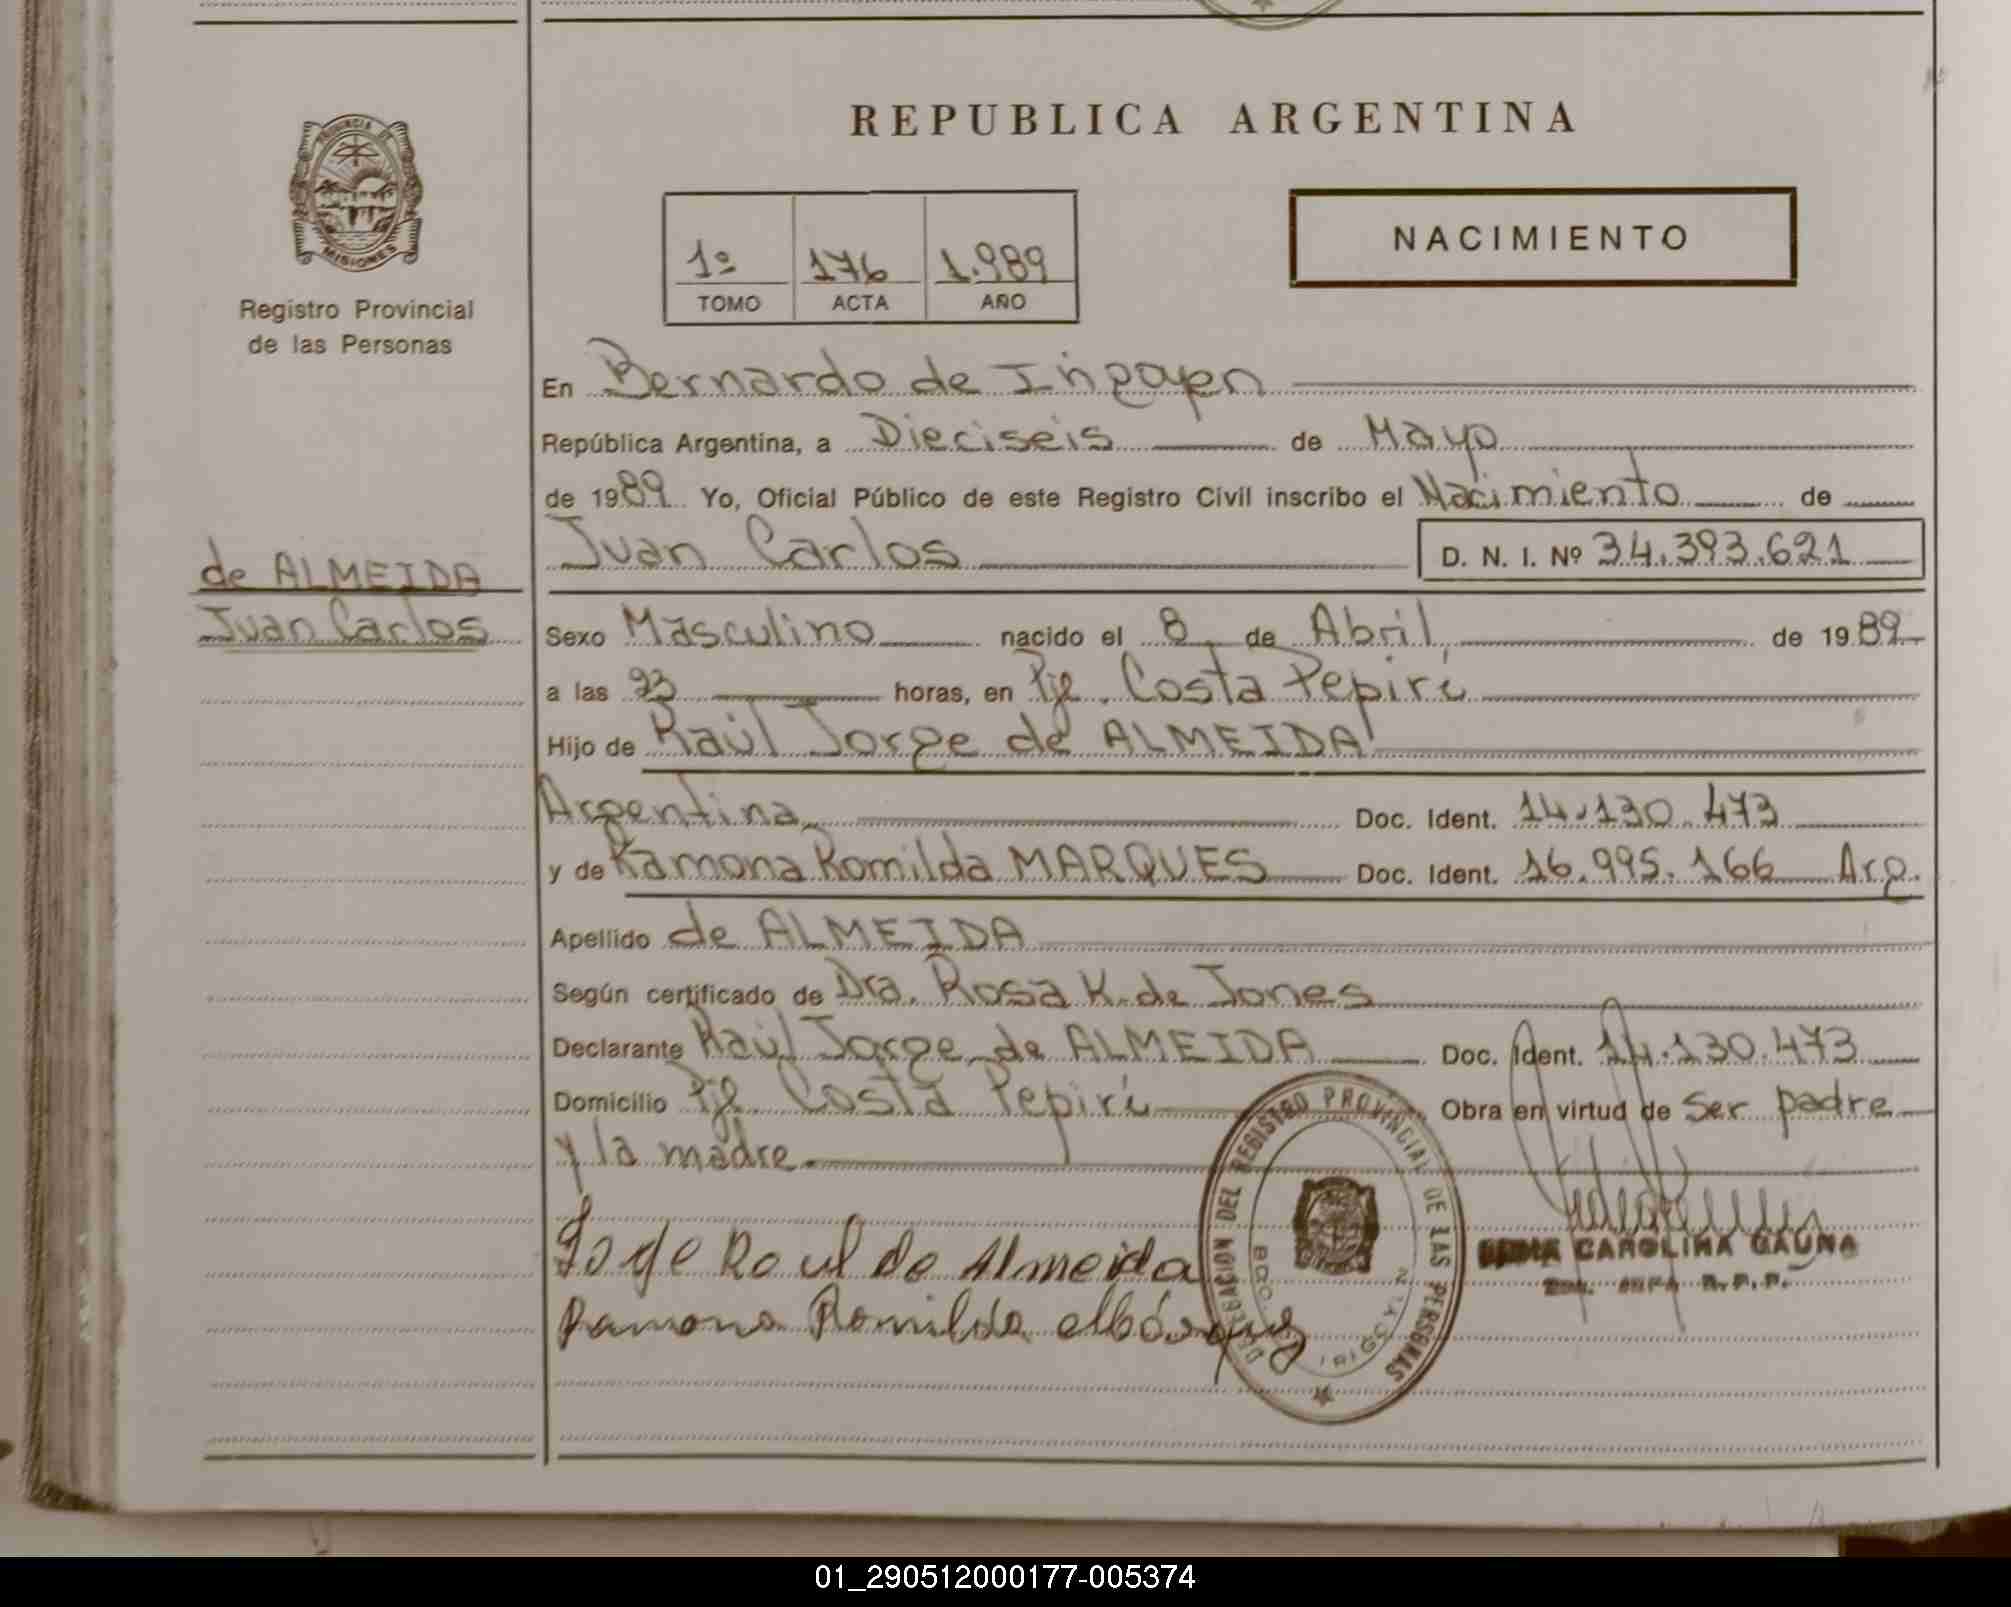 REPUBLICA ARGENTINA
PROVINCIA DE
MISIONES
Registro Provincial
de las Personas
1º 176 1.989
TOMO ACTA AÑO
NACIMIENTO
En Bernardo de Irigoyen
República Argentina, a Dieciseis de Mayo
de 1989 Yo, Oficial Público de este Registro Civil inscribo el Nacimiento de
Juan Carlos D. N. I. Nº 34.393.621
de ALMEIDA
Juan Carlos
Sexo Masculino nacido el 8 de Abril de 1989
a las 23 horas, en Pje. Costa Pepirí
Hijo de Raúl Jorge de ALMEIDA
Argentina Doc. Ident. 14.130.473
y de Ramona Romilda MARQUES Doc. Ident. 16.995.166 Arg.
Apellido de ALMEIDA
Según certificado de Dra. Rosa K. de Jones
Declarante Raúl Jorge de ALMEIDA Doc. Ident. 14.130.473
Domicilio Pje. Costa Pepirí Obra en virtud de ser padre
y la madre.
Jorge Raul de Almeida
Ramona Romilda
DELEGACION DEL REGISTRO PROVINCIAL DE LAS PERSONAS
BDO. DE IRIGOYEN
CAROLINA GAUNA
R.P.P.
01_290512000177-005374